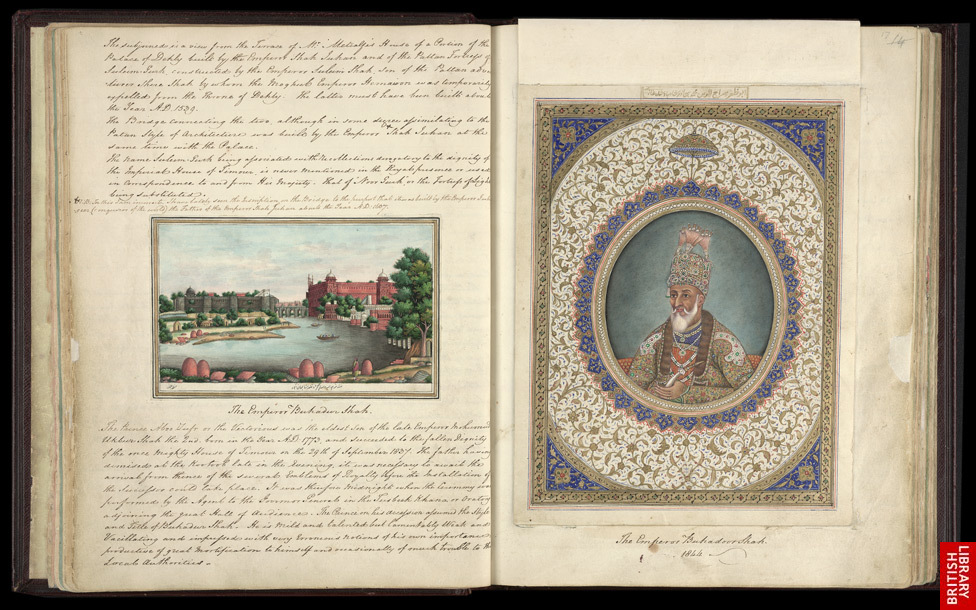 The subjoined is a view from the Terrace of Mr. Metcalfe's House of a Portion of the
Palace of Dehly built by the Emperor Shah Juhan and of the Pattan Fortress of
Suleem Gurh constructed by the Emperor Suleem Shah, Son of the Pattan adven
turer Shere Shah by whom the Moghul Emperor Homaioon was temporarily
expelled from the Throne of Dehly. The latter must have been built about
the Year A.D. 1539.
The Bridge connecting the two, although in some degree assimilating to the
Patan Style of Architecture was built by the Emperor Shah Juhan at the
same time with the Palace.
The name Suleem Gurh being associated with recollections derogatory to the dignity of
the Imperial House of Timour is never mentioned in the Royal presence or used
in Correspondence to and from His Majesty. That of Noor Gurh or the Fortress of Light
being substituted.
the Inscription on the Bridge to the purport that it was built by the Emperor
(Conqueror of the world) the Father of the Emperor Shah Juhan about the Year A.D.
The Emperor Buhadur Shah.
The Prince Aboo Zufr or the Victorious was the eldest Son of the late Emperor Mohummud
Ukhbur Shah the 2nd. born in the Year A.D. 1773, and succeeded to the fallen Dignity
of the once Mighty House of Timour on the 29th of September 1837. The father having
demised at the Kootoob late in the evening, it was necessary to await the
arrival from thence of the several Emblems of Royalty before the Installation of
the Successor could take place. It was therefore Midnight when the Ceremony was
performed by the Agent to the Governor General in the Tusbeeh Khana or Oratory
adjoining the great Hall of Audience. The Prince on his accession assumed the Style
and Title of Buhadur Shah. He is mild and talented but lamentably Weak and
Vacillating and impressed with very erroneous notions of his own importance
productive of great mortification to himself and occasionally of much trouble to the
Local Authorities.
14
The Emperor Buhadoor Shah.
1844
BRITISH
LIBRARY